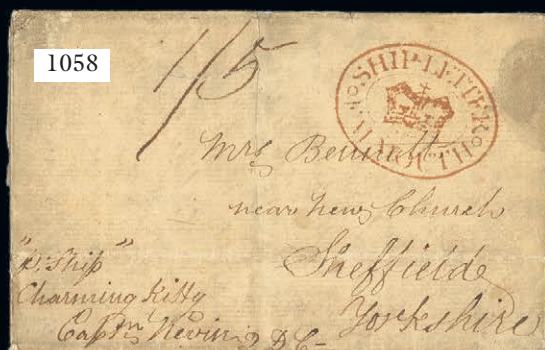 1058
1/5
SHIP-LETTER
Mrs Bennett
near New Church
Sheffield
Yorkshire
"P: Ship"
Charming Kitty
Captn Nevin Q D C